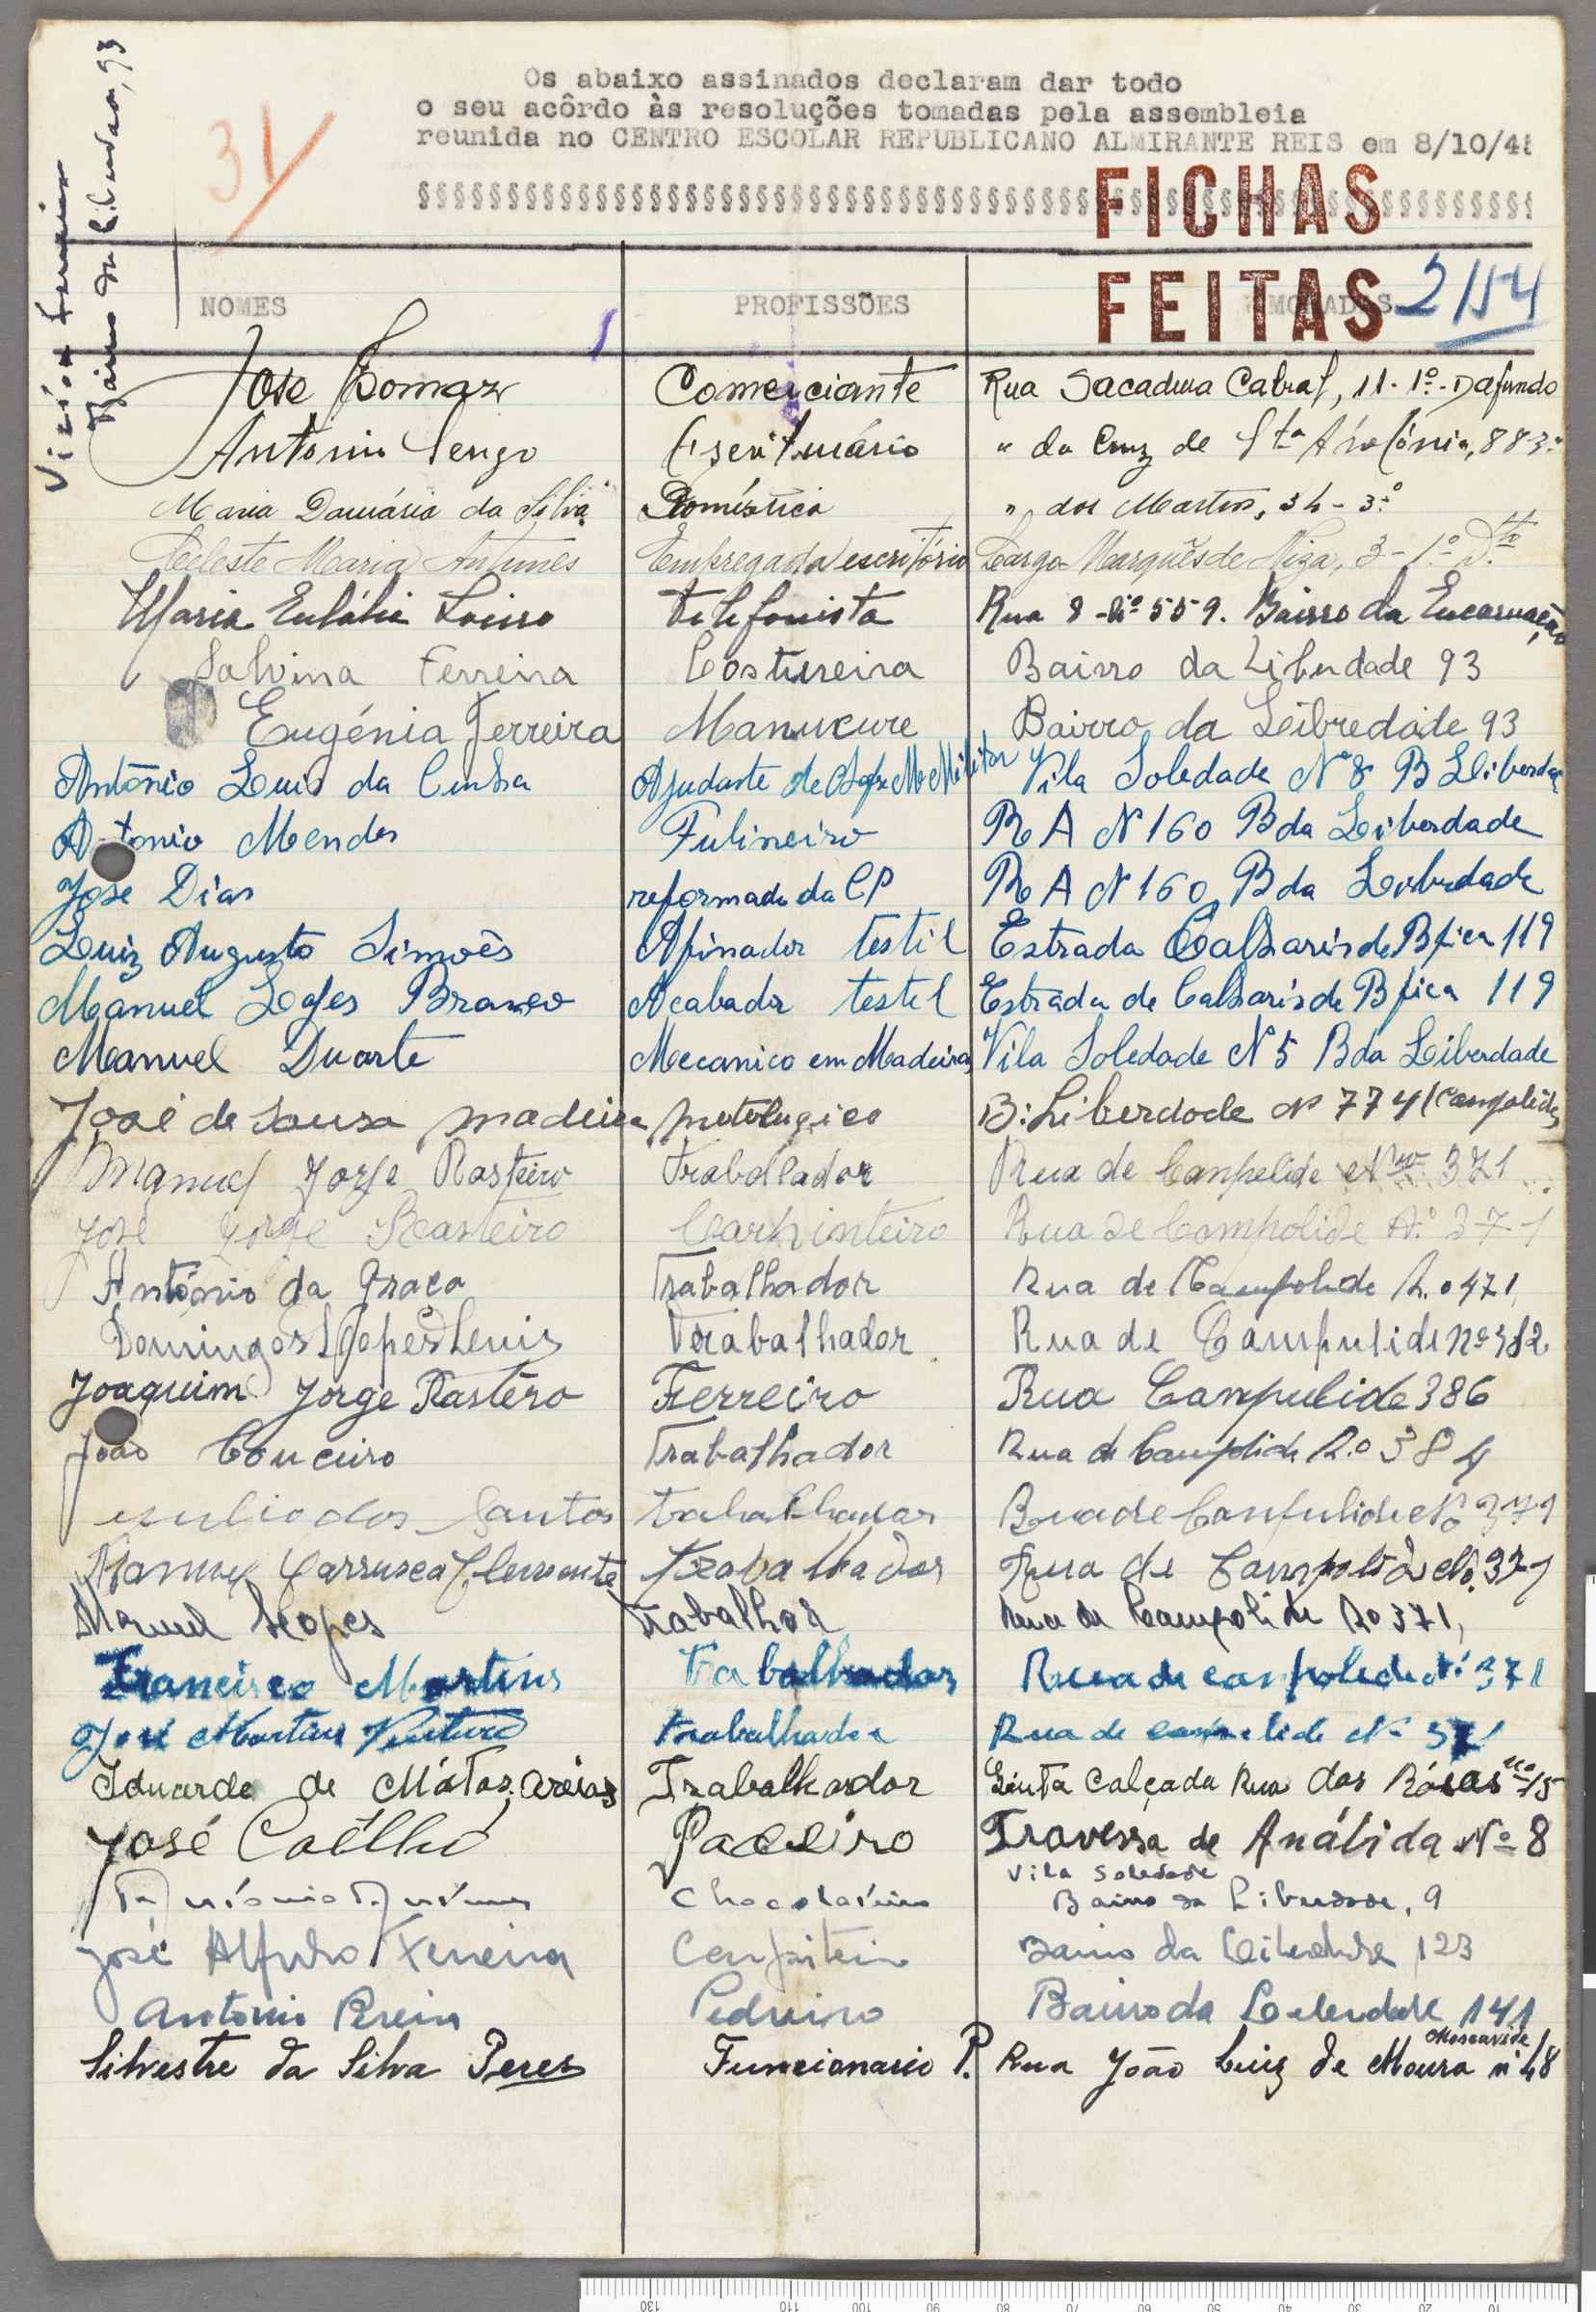 Os abaixo assinados declaram dar todo
o seu acôrdo às resoluções tomadas pela assembleia
reunida no CENTRO ESCOLAR REPUBLICANO ALMIRANTE REIS em 8/10/45
31
FICHAS
FEITAS
2/54
Bairro da Liberdade, 93
NOMES PROFISSÕES MORADAS
José Tomaz Comerciante Rua Sacadura Cabral, 11-1º-Dafundo
António Comercio Escriturário " da Cruz de Sta Apolónia, 88 3º
Maria Damásia da Silva Doméstica " dos Mastros, 34-3º
Celeste Maria Antunes Empregada escritório Largo Marquês de Niza, 3-1º Dto
Maria Eulália Telefonista Rua 8-nº 559. Bairro da Encarnação
Salvina Ferreira Costureira Bairro da Liberdade 93
Eugénia Ferreira Manucure Bairro da Libredade 93
António Luis da Cunha Ajudante de Vila Soledade Nº 8 B Liberdade
António Mendes Fulineiro R A Nº 160 B da Liberdade
José Dias reformado da CP R A Nº 160 B da Liberdade
Luiz Augusto Simoês Afinador testil Estrada Calharis de Bfica 119
Manuel Lopes Branco Acabador testil Estrada de Calharis de Bfica 119
Manuel Duarte Mecanico em Madeiras Vila Soledade Nº 5 B da Liberdade
José de Sousa madeira B: Liberdade Nº 774 (Campolide)
Manuel Jorge Rasteiro Trabalhador Rua de Campelide Nro 371
José Jorge Rasteiro Carpinteiro Rua de Compolide Nº 371
António da Graca Trabalhador Rua de Campolide N.o 471
Domingos Lopes Trabalhador Rua de Campulide nº 382
Joaquim Jorge Rastêro Ferreiro Rua Campulide 386
João Couceiro Trabalhador Rua de Campolide N.o 384
Julio dos Santos trabalhador Rua de Canpulide Nº 371
Manuel Carrusca Clemente trabalhador Rua de Campolide Nº 371
Manuel Lopes Trabalhor Rua de Campolide No 371,
Francisco Martins trabalhador Rua de canpolede Nº 371
José Martins Ventura trabalhador Rua de Nº 371
Eduardo de Mátos, Areias Trabalhador Calçada Rua das Rosas nro 15
José Coêlho Padeiro Travessa de Análida Nº 8
António Chocolateiro Vila Soledade
Bairro da Liberdade, 9
José Alfredo Ferreira Carpinteiro Bairro da Liberdade 123
Antonio Pereira Pedreiro Bairro da Liberdade 141
Silvestre da Silva Peres Funcionario P. Rua João Luiz de Moura nº 48 Moscavide